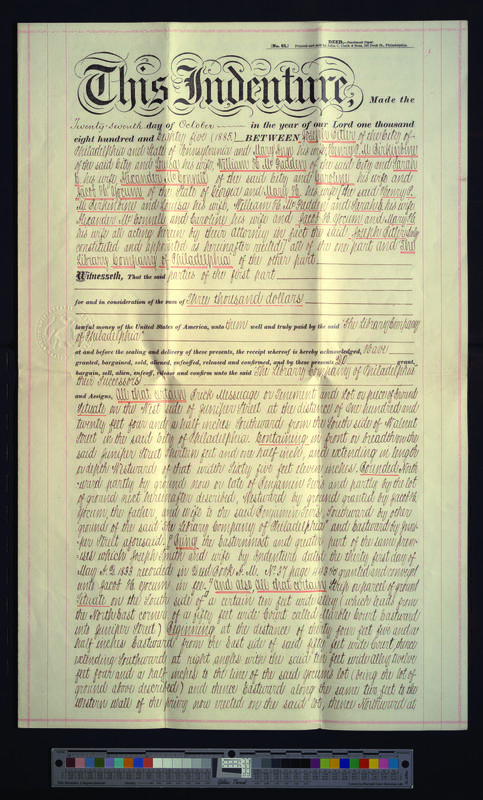 (No. 25.) DEED.—Parchment Paper
Printed and sold by John C. Clark & Sons, 230 Dock St., Philadelphia.
This Indenture, Made the
Twenty-seventh day of October in the year of our Lord one thousand
eight hundred and eighty five (1885) BETWEEN Joseph of the City of
Philadelphia and State of Pennsylvania and Mary Ann his wife Henry
of the said City and Louisa his wife, William McFadden of the said City and Sarah
his wife, Alexander McConnell of the said City and Caroline his wife and
Jacob H. Yocum of the State of Georgia and Mary his wife (the said Henry
and Louisa his wife, William McFadden and Sarah his wife
Alexander McConnell and Caroline his wife and Jacob H. Yocum and Mary
his wife all acting herein by their attorney in fact the said Joseph duly
constituted and appointed as hereinafter recited) of the one part and The
Library Company of Philadelphia of the other part
Witnesseth, That the said parties of the first part
for and in consideration of the sum of Three thousand dollars
lawful money of the United States of America, unto them well and truly paid by the said The Library Company
of Philadelphia
at and before the sealing and delivery of these presents, the receipt whereof is hereby acknowledged, have
granted, bargained, sold, aliened, enfeoffed, released and confirmed, and by these presents Do grant,
bargain, sell, alien, enfeoff, release and confirm unto the said The Library Company of Philadelphia
their Successors
and Assigns, All that certain Brick Messuage or Tenement and lot or piece of Ground
Situate on the West side of Juniper Street at the distance of One hundred and
twenty feet four and a half inches Southward from the South side of Walnut
Street in the said City of Philadelphia. Containing in front or breadth on the
said Juniper Street Thirteen feet and one half inch, and extending in length
or depth Westward of that width Sixty five feet eleven inches. Bounded North
ward partly by ground now or late of Benjamin and partly by the lot
of ground next hereinafter described, Westward by ground granted by Jacob
Yocum, the father, and wife to the said Benjamin, Southward by other
ground of the said "The Library Company of Philadelphia" and Eastward by Juni-
per Street aforesaid. Being the Easternmost and greater part of the same premi-
ses which Joseph Smith and wife by Indenture dated the thirty first day of
May A.D. 1833 recorded in Deed Book A.M. No. 37 page granted and conveyed
unto Jacob H. Yocum in fee. And also, all that certain Strip or parcel of ground
Situate on the South side of a certain ten feet wide alley (which leads from
the North East corner of a fifty feet wide Court called Stable Court Eastward
into Juniper Street) Beginning at the distance of thirty four feet five and a
half inches Eastward from the East side of said fifty feet wide Court, thence
extending Southward at right angles with the said ten feet wide alley twelve
feet four and a half inches to the line of the said Yocum's lot (being the lot of
ground above described) and thence Eastward along the same two feet to the
Western wall of the privy now erected on the said lot, thence Northward at